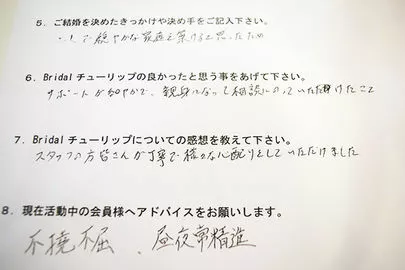 5．ご結婚を決めたきっかけや決め手をご記入下さい。
穏やかな家庭を築けると思ったため
6．Bridal チューリップの良かったと思う事をあげて下さい。
サポートが細やかで、親身になって相談にのっていただけたこと
7．Bridal チューリップについての感想を教えて下さい。
スタッフの方皆さんが丁寧で細やかな心配りをしていただけました
8．現在活動中の会員様へアドバイスをお願いします。
不撓不屈、昼夜常精進